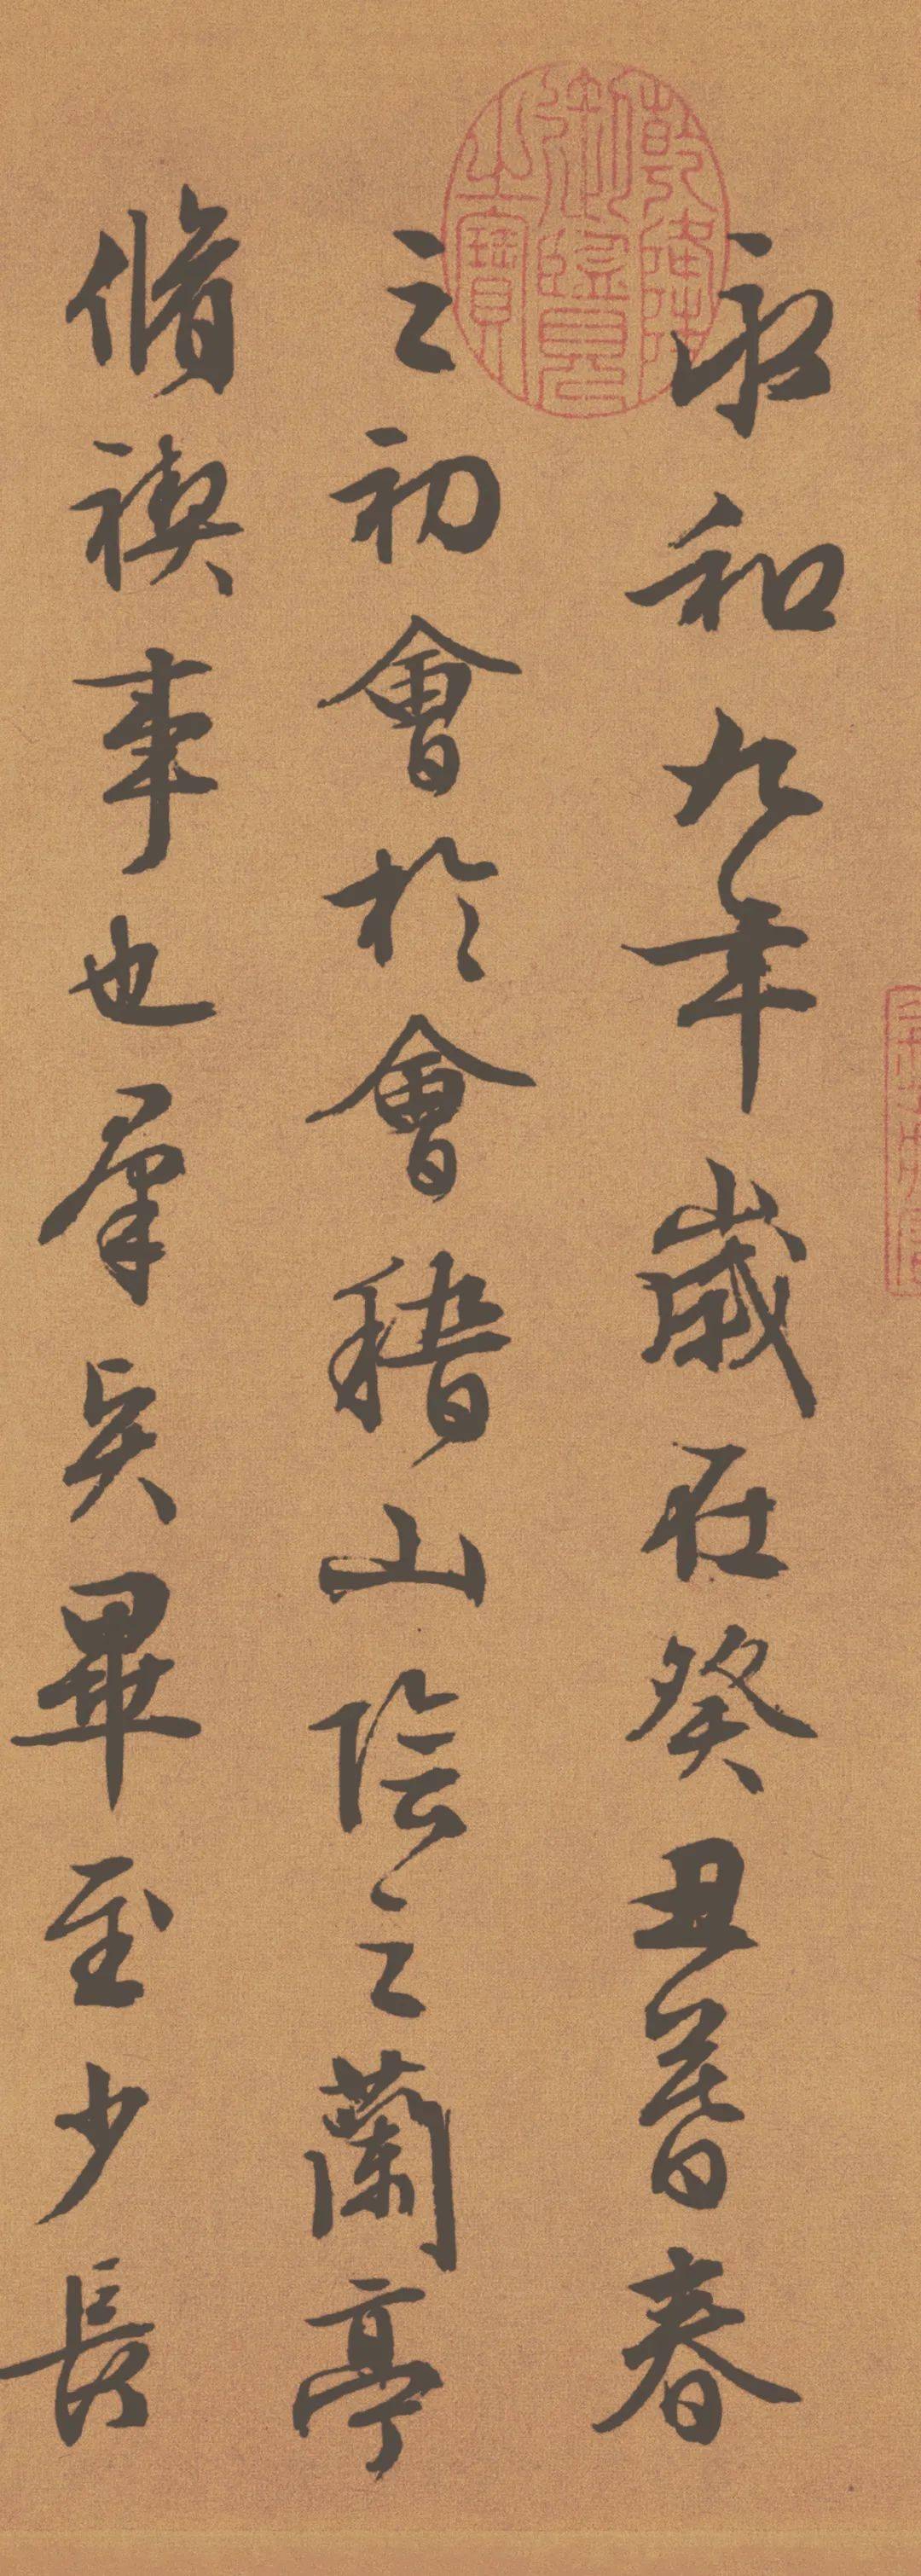 永和九年歲在癸丑暮春
之初會於會稽山陰之蘭亭
脩禊事也羣賢畢至少長
乾隆
御覽
之寶